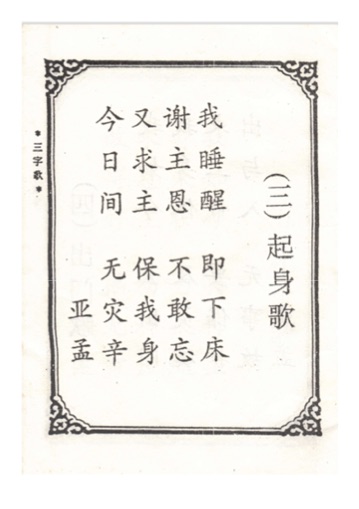 *三字歌*
(三)起身歌
我睡醒 即下床
谢主恩 不敢忘
又求主 保我身
今日间 无灾辛
亚孟